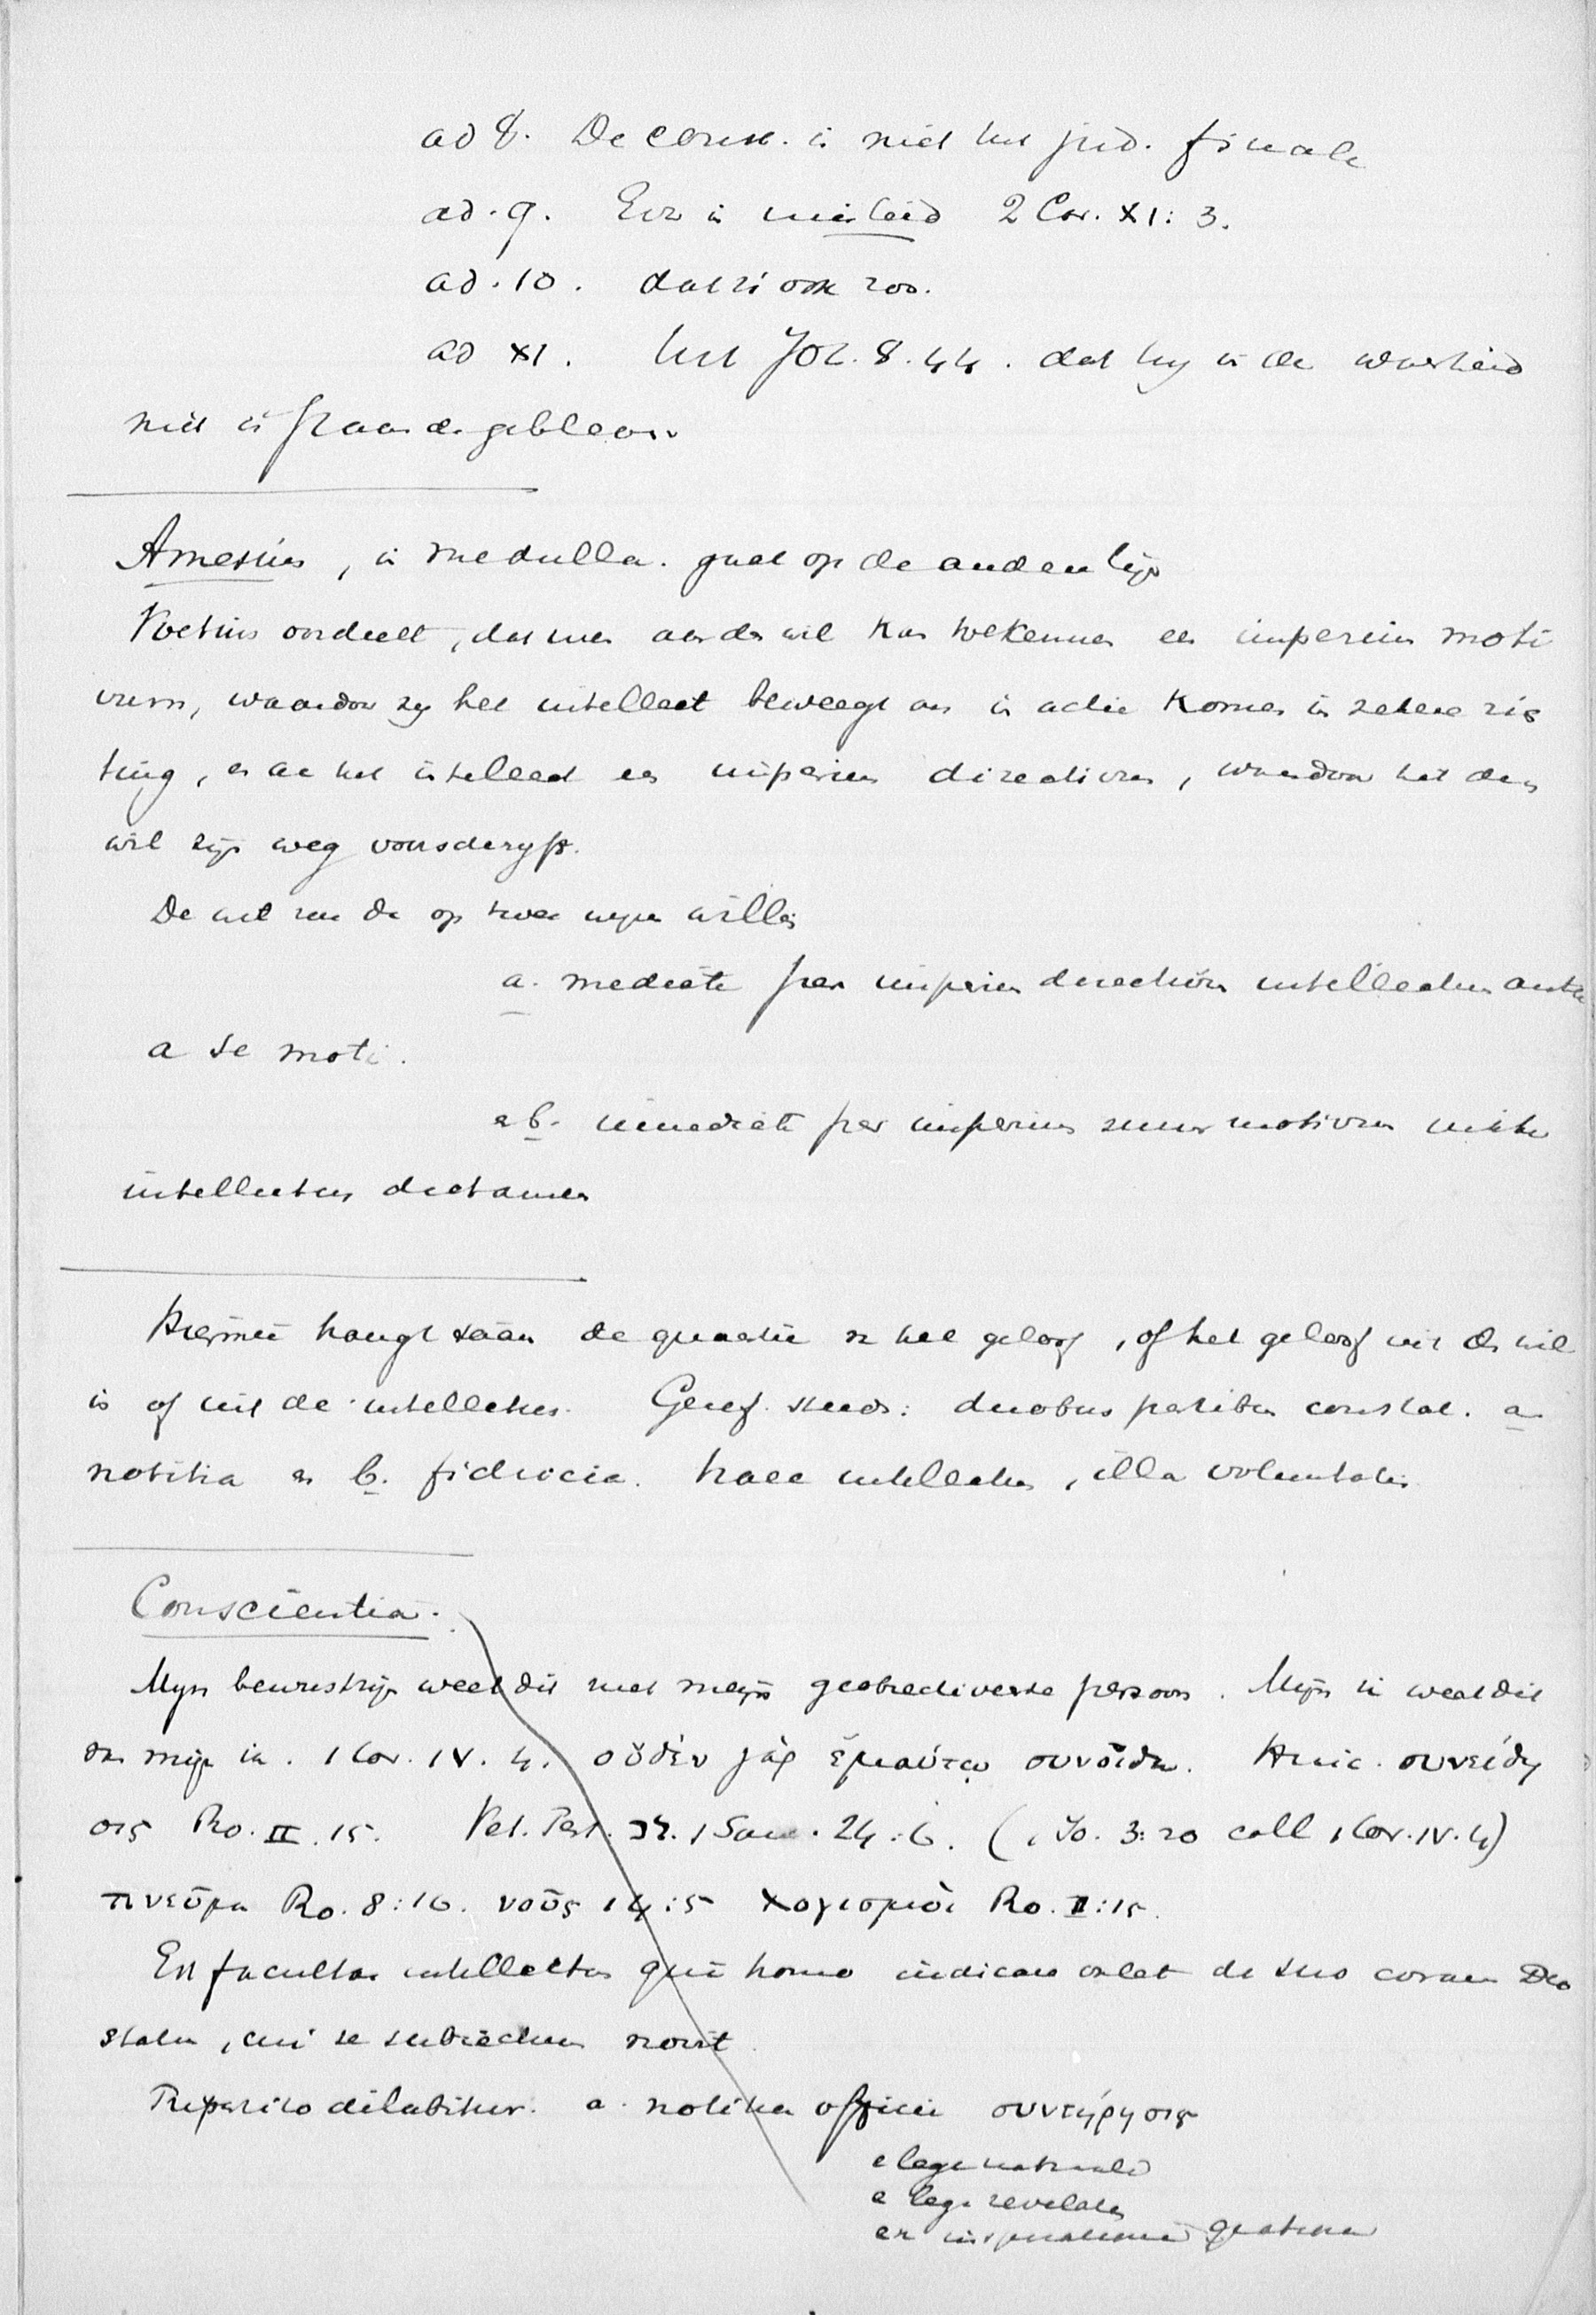 ad 8. De consc. is niet het jud. finale
ad. 9. Eva is misleid 2 Cor. XI: 3.
ad. 10. dat zij ook zoo.
ad XI. het Joh. 8. 44. dat hy in de waarheid
niet is staande gebleven
Amesius, in medulla. gaat op de anderen lijn
Voetius oordeelt, dat men aan den wil kan toekennen een imperium moti
vum, waardoor zy het intellect beweegt om in actie komen in zekere rich
ting, en aan het intellect een imperium directivum, waardoor het den
wil zijn weg voorschryft.
De wil zou dan op twee wijzen willen
a. mediate per imperium directivum intellectus ante
a se moti.
en b. immediate per imperium suum motivum
intellectus dictamen
Hiermee hangt saam de quaestie in het geloof, of het geloof uit den wil
is of uit de intellectus. Geref. steeds: duobus partibus constat. a
notitia en b. fiducia. haec intellectus, illa voluntatis
Conscientia.
Myn bewustzijn weet dit met mijn persoon. Mijn ik weet dit
van mijn ik. 1 Cor. IV. 4. οὐδὲν γὰρ ἐμαυτῷ συνοιδα. Huic. συνείδη
σις Ro. II. 15. Vet. Test. לב. 1 Sam. 24:6. (1 Jo. 3:20 coll 1 Cor. IV. 4)
πνεῦμα Ro. 8:16. νοῦς 14:5 λογισμοὶ Ro. II:15.
Est facultas intellectus qua homo iudicare valet de suo coram Deo
statu, cui se subiectum novit
Tripartito dilabitur: a. notitia officii συντήρησις
e lege naturali
e lege revelata
ex